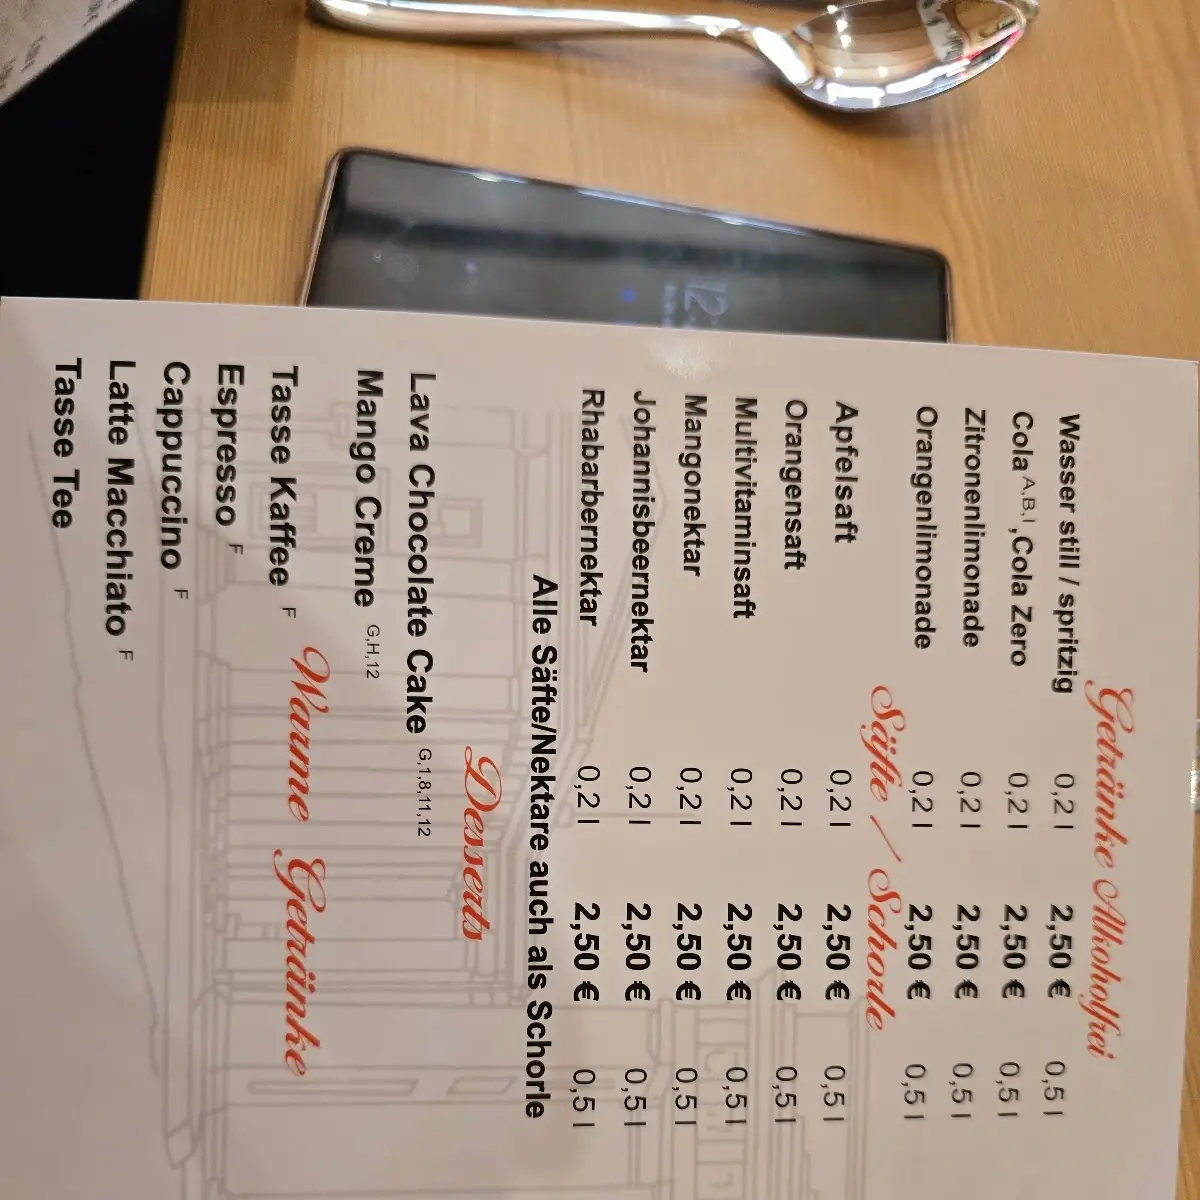 Getränke Alkoholfrei
Wasser still / spritzig 0,2 l 2,50 € 0,5 l
Cola A,B,I ,Cola Zero 0,2 l 2,50 € 0,5 l
Zitronenlimonade 0,2 l 2,50 € 0,5 l
Orangenlimonade 0,2 l 2,50 € 0,5 l
Säfte / Schorle
Apfelsaft 0,2 l 2,50 € 0,5 l
Orangensaft 0,2 l 2,50 € 0,5 l
Multivitaminsaft 0,2 l 2,50 € 0,5 l
Mangonektar 0,2 l 2,50 € 0,5 l
Johannisbeernektar 0,2 l 2,50 € 0,5 l
Rhabarbernektar 0,2 l 2,50 € 0,5 l
Alle Säfte/Nektare auch als Schorle
Desserts
Lava Chocolate Cake G,1,8,11,12
Mango Creme G,H,12
Warme Getränke
Tasse Kaffee F
Espresso F
Cappuccino F
Latte Macchiato F
Tasse Tee